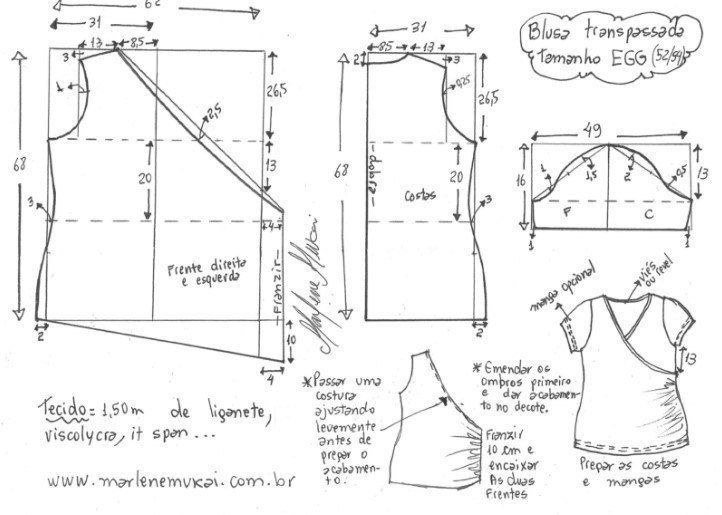 62
31
13
8,5
3
1
2,5
26,5
13
68
20
3
4
Frente direita
e esquerda
Franzir
2
10
4
Marlene Mukai
31
8,5
13
2
3
0,25
26,5
dobra
20
68
Costas
3
2
Blusa transpassada
tamanho EGG (52/54)
49
16
13
1
1,5
2
0,5
F
C
1
1
manga opcional
viés
ou revel
13
Preparas costas
e mangas
*Passar uma
costura
ajustando
levemente
antes de
prepar o
acabamen-
to.
*Emendar os
ombros primeiro
e dar acabamen-
to no decote.
Franzir
10 cm e
encaixar
As duas
Frentes
Tecido = 1,50m de liganete,
viscolycra, it span...
www.marlenemukai.com.br